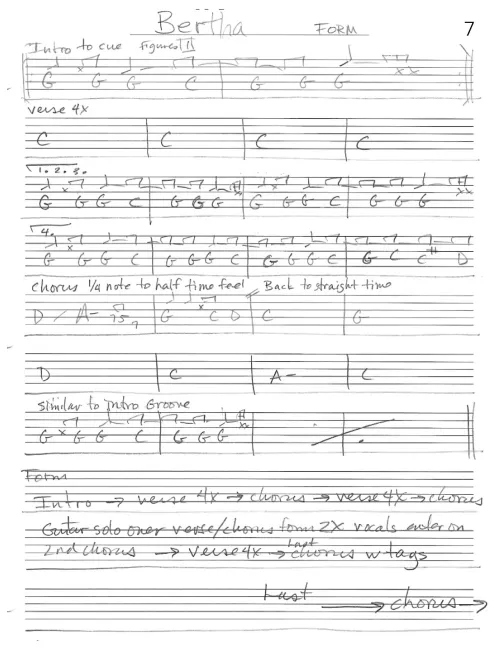 Bertha FORM 7
Intro to cue Figures 1
G G G C G G G xx
verse 4x
C C C C
1. 2. 3.
G G G C G G G G G G C G G G
4.
G G G C G G G C G G G C G C C# D
chorus 1/4 note to half time feel Back to straight time
D / A- G C D C G
D C A- C
similar to intro Groove
G G G C G G G
Form
Intro → verse 4x → chorus → verse 4x → chorus
Guitar solo over verse/chorus form 2x vocals enter on
2nd chorus → verse 4x → Last chorus w tags
Last → chorus →